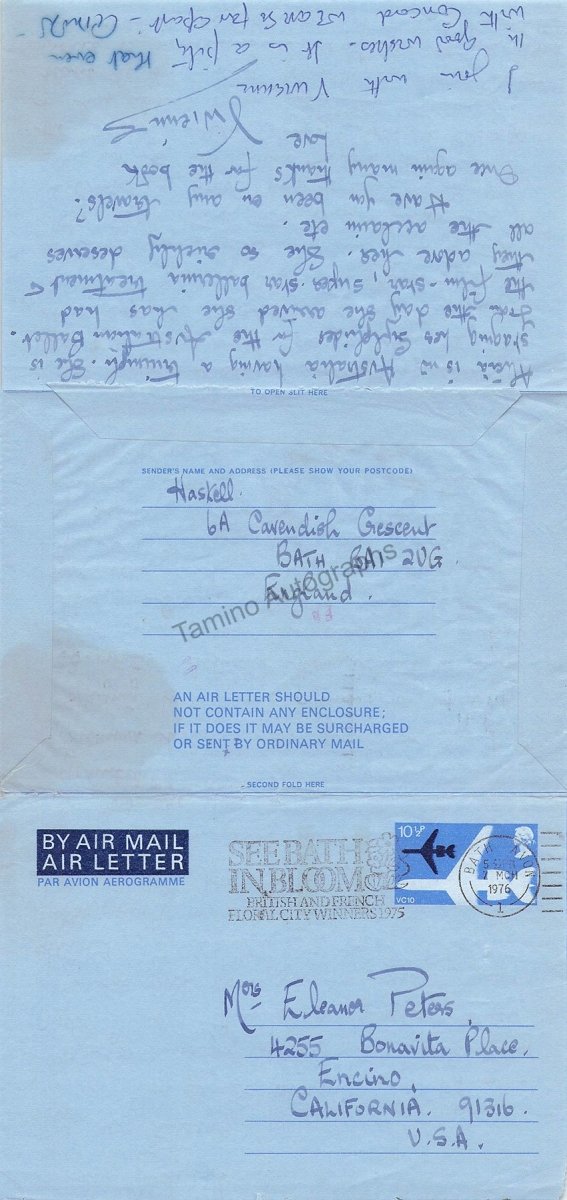 Alicia is in Australia having a triumph. She is
staging Les Sylphides for the Australian Ballet.
From the day she arrived she has had
the film-star, super-star ballerina treatment &
they adore her. She so richly deserves
all the acclaim etc.
Have you been on any travels?
Once again many thanks for the book
Love
Vivienne
I join with Vivienne
in good wishes. It is a pity that even
with Concord we are so far apart-
TO OPEN SLIT HERE
SENDER'S NAME AND ADDRESS (PLEASE SHOW YOUR POSTCODE)
Haskell.
6A Cavendish Crescent
BATH BA1 2UG.
England.
Tamino Autographs
AN AIR LETTER SHOULD
NOT CONTAIN ANY ENCLOSURE;
IF IT DOES IT MAY BE SURCHARGED
OR SENT BY ORDINARY MAIL
SECOND FOLD HERE
BY AIR MAIL
AIR LETTER
PAR AVION AEROGRAMME
SEE BATH
IN BLOOM
BRITISH AND FRENCH
FLORAL CITY WINNERS 1975
10½P
VC10
BATH AVON
7 MCH
1976
1
Mrs Eleanor Peters,
4255 Bonavita Place,
Encino,
CALIFORNIA. 91316.
U.S.A.